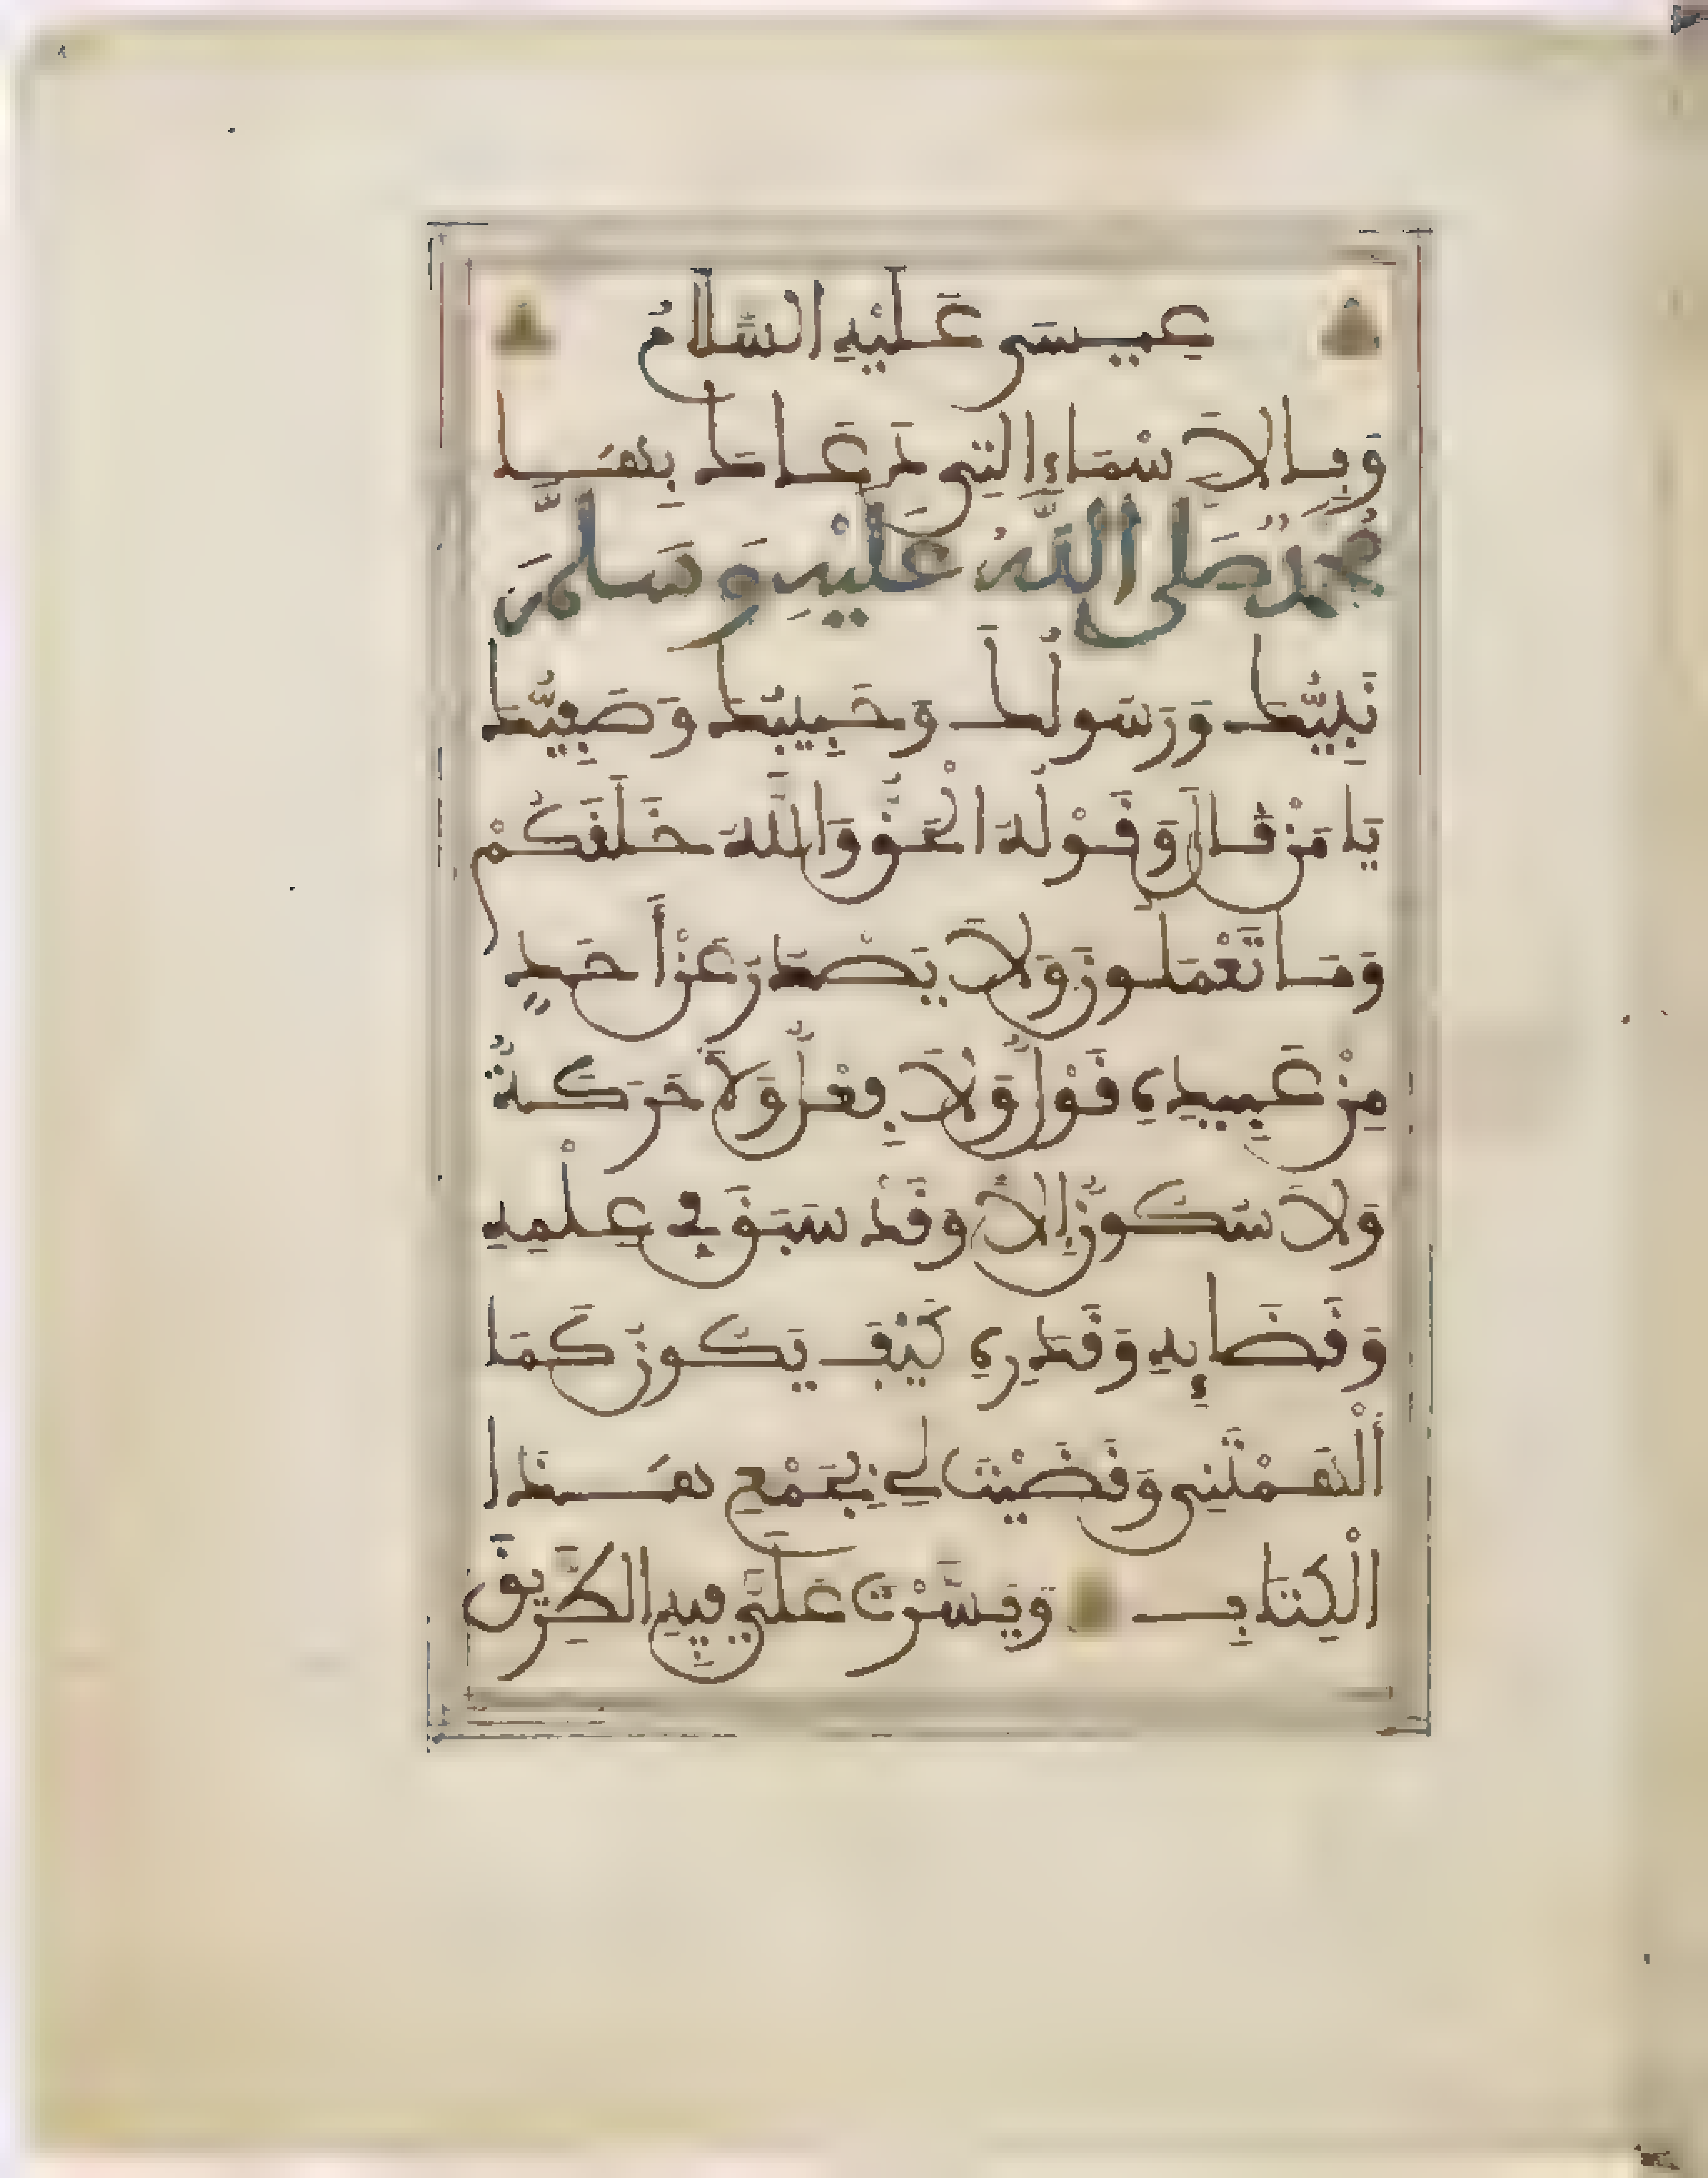 عِيسَى عَلَيْهِ السَّلَامُ
وَبِالَاسْمَاءِ التِي دَعَاكَ بِهَا
مُحَمَّدٌ صَلَى اللَّهُ عَلَيْهِ وَسَلمَ
نَبِيُّكَ وَرَسُولُكَ وَحَبِيبُكَ وَصَفِيُّكَ
يَا مَنْ قَالَ وَقَوْلُهُ الْحَقُّ وَاللَّهُ خَلَقَكُمْ
وَمَا تَعْمَلُونَ وَلَا يَصْدُرُ عَنْ أَحَدٍ
مِنْ عَبِيدِهِ قَوْلٌ وَلَا فِعْلٌ وَلَا حَرَكَةٌ
وَلَا سُكُونٌ إِلَّا وَقَدْ سَبَقَ فِي عِلْمِهِ
وَقَضَائِهِ وَقَدَرِهِ كَيْفَ يَكُونُ كَمَا
أَلْهَمْتَنِي وَقَضَيْتَ لِي بِجَمْعِ هَذَا
الْكِتَابِ وَيَسَّرْتَ عَلَيَّ فِيهِ الطَّرِيقَ